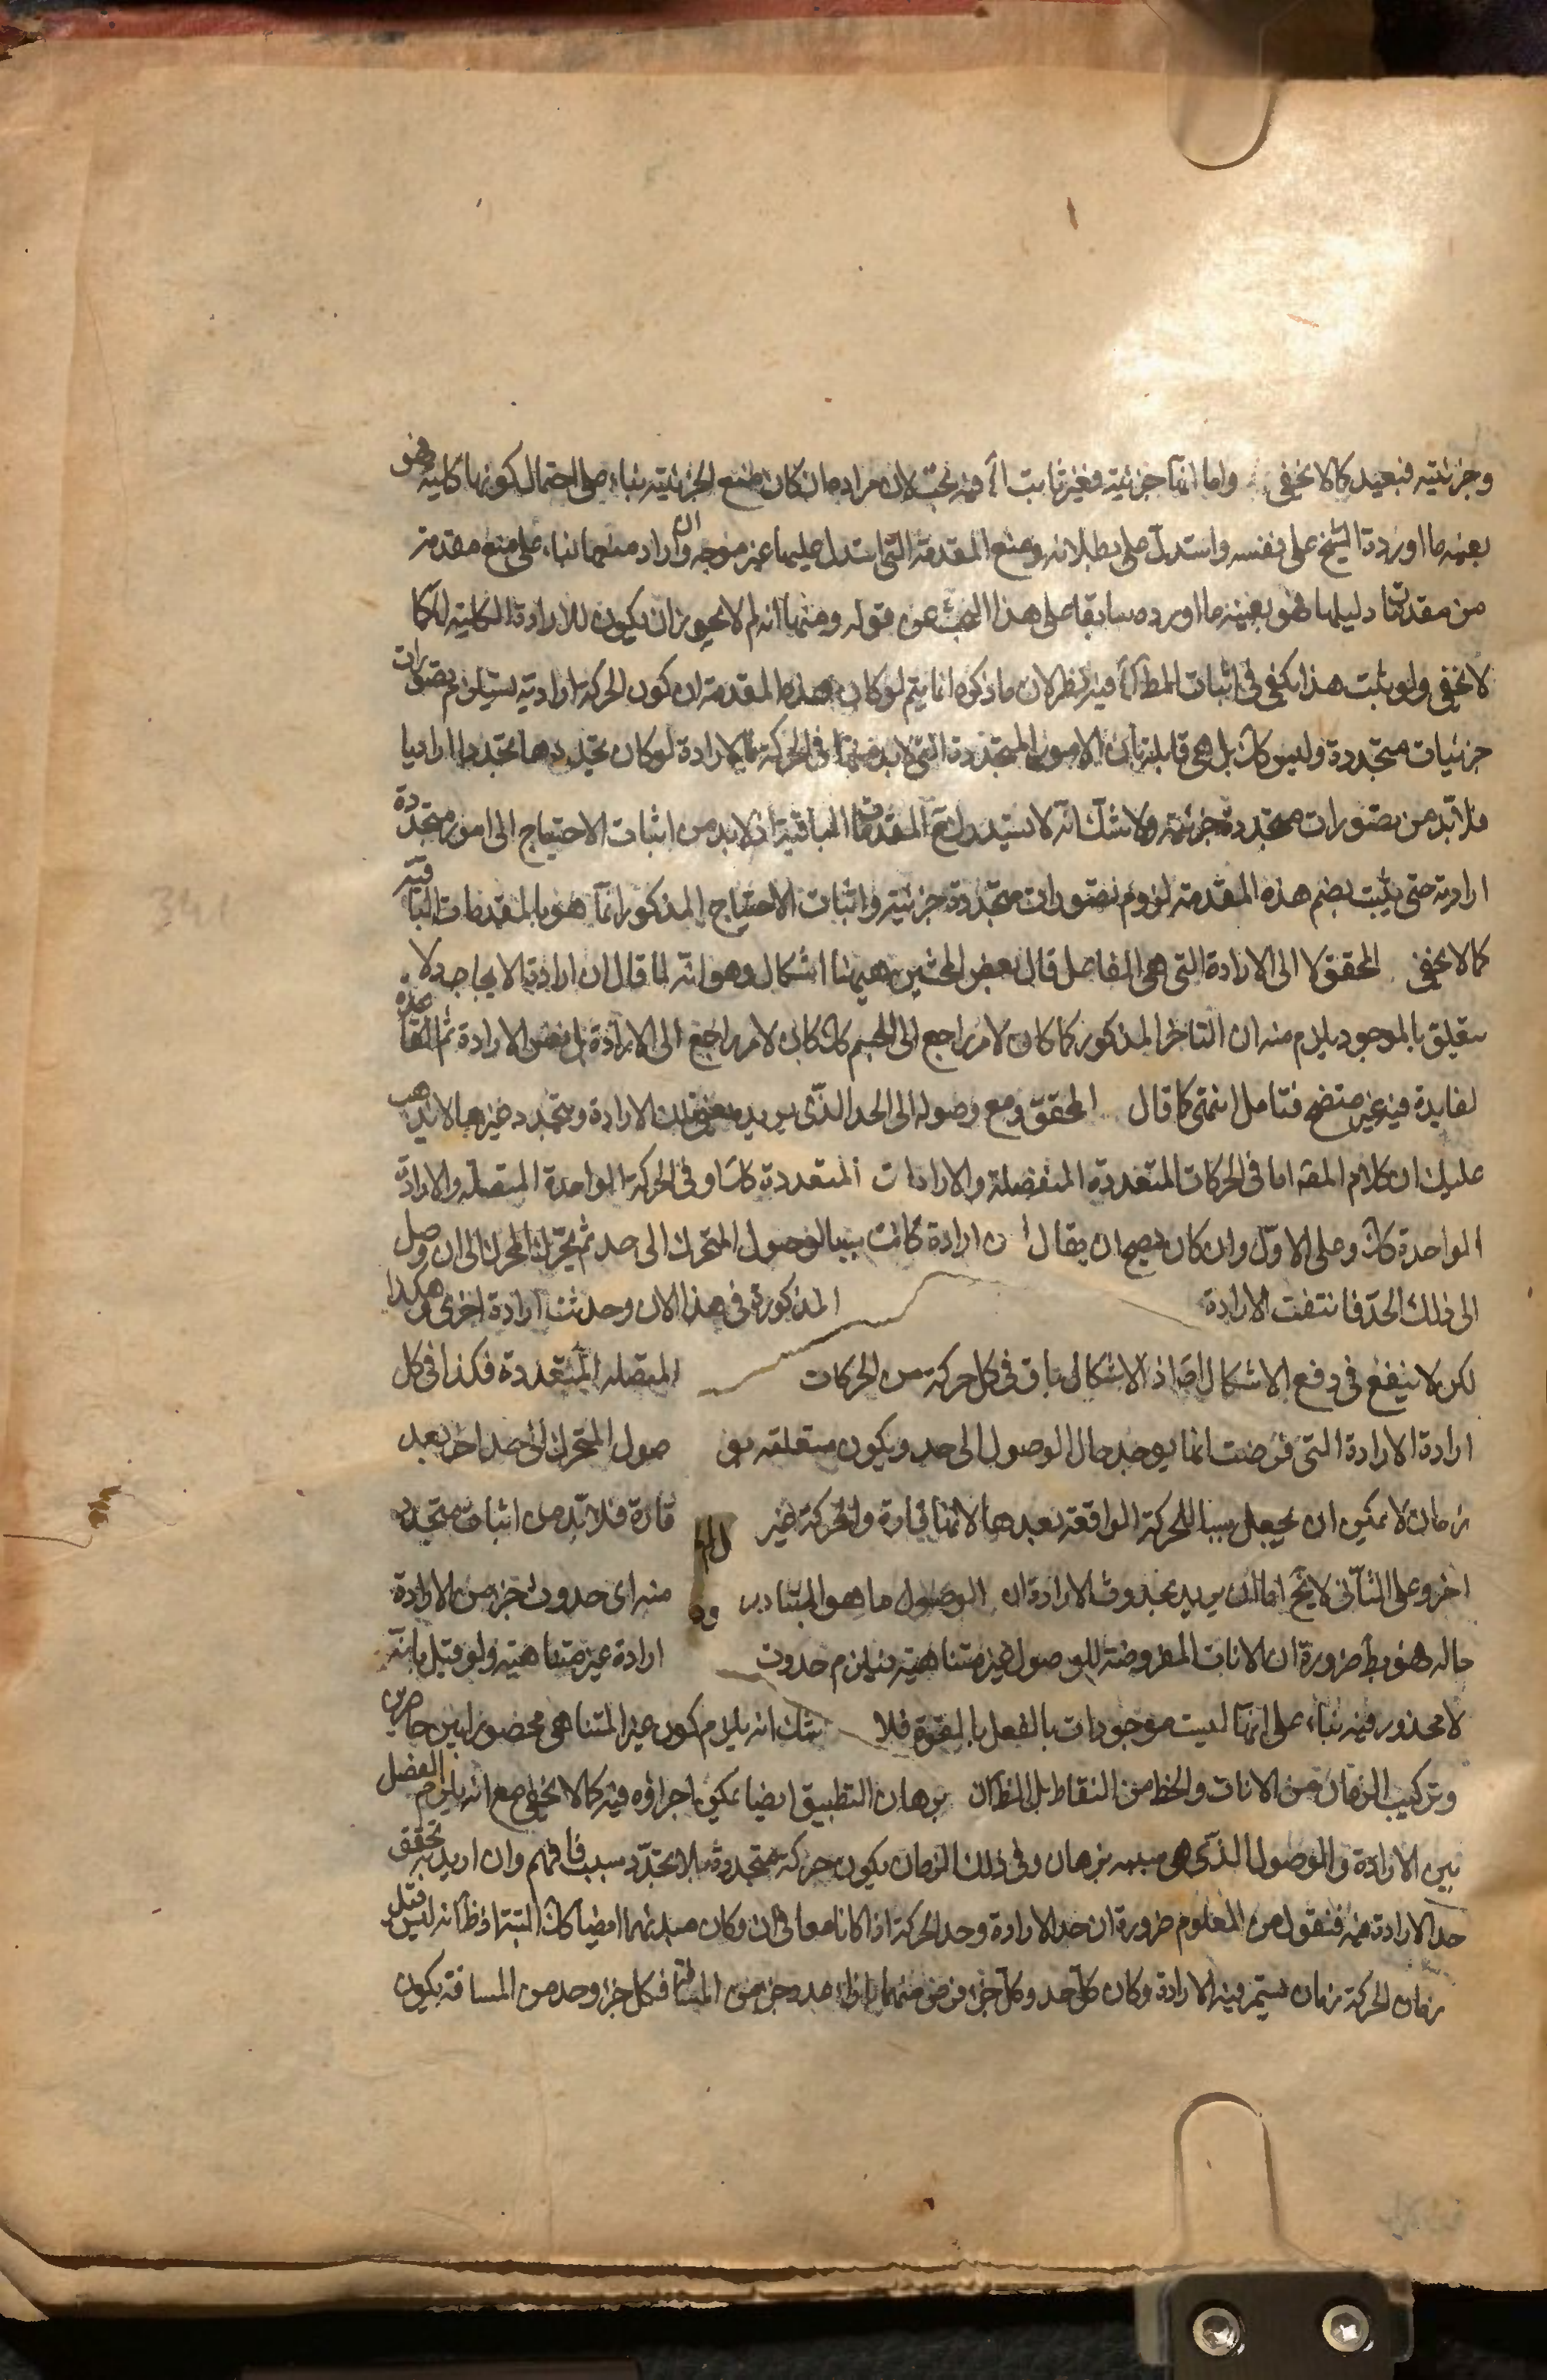 وجزئيته فبعيد كما لا يخفى واما انها جزئية فغير ثابت آه فيه بحث لان مراده ان كان منع الجزئية بناء على احتمال كونها كلية فهو
بعينه ما اورده الشيخ على نفسه واستدل على بطلانه ومنع المقدمة التي استدل عليها غير موجه وان اراد منعها بناء على منع مقدمة
من مقدمات دليلها فهو بعينه ما اورده سابقا على هذا البحث عن قوله ومنها انه لم لا يجوز ان يكون للارادة الكلية كما
لا يخفى ولو يثبت هذا يكفى فى اثبات المط آه فيه نظر لان ما ذكره انما يتم لو كان هذه المقدمة ان كون الحركة ارادية يستلزم تصورات
جزئيات متجددة وليس كك بل هى قابلة بان الامور المتجددة التى لابد منها فى الحركة الارادة لو كان تجددها تجددا اراديا
فلا بد من تصورات متجددة جزئية ولا شك انه لا يستدرك المقدمات الباقية اذ لا بد من اثبات الاحتياج الى امور متجددة
ارادية حتى يثبت بضم هذه المقدمة لزوم تصورات متجددة جزئية واثبات الاحتياج المذكور انما هو بالمقدمات الباقية
كما لا يخفى المحقق لا الى الارادة التى هى الفاصل قال بعض المحشين ههنا اشكال وهو انه لما قال ان ارادة الايجاد لا
يتعلق بالموجود يلزم منه ان التاخر المذكور كما كان لامر راجع الى الجسم كك كان لامر راجع الى الارادة بل نفس الارادة ثم القاعدة
لفايدة فيه غير متضح فتامل انتهى كما قال المحقق ومع وصوله الى الحد الذى يريد يفنى تلك الارادة ويتجدد غيرها لا يذهب
عليك ان كلام المصه اما فى الحركات المتعددة المنفصلة والارادات المتعددة كك او فى الحركة الواحدة المتصلة والارادة
الواحدة كك وعلى الاول وان كان يصح ان يقال ان ارادة كانت سببا لوصول المتحرك الى حد ثم يحرك المحرك الى ان وصل
الى ذلك الحد فانتفت الارادة المذكورة فى هذا الان وحدثت ارادة اخرى وهكذا
لكن لا ينفع فى دفع الاشكال اصلا اذ الاشكال باق فى كل حركة من الحركات المتصلة المتعددة فكذا فى كل
ارادة الارادة التى فرضت انما يوجد حال الوصول الى حد ويكون متعلقه بو صول المتحرك الى حد اخر بعد
زمان لا يمكن ان يجعل سببا للحركة الواقعة بعدها لانها قارة والحركة غير قارة فلا بد من اثبات متجدد
اخر وعلى الثانى لا يخ اما ان يريد بحدوث الارادة ان الوصول ما هو المتبادر منه اى حدوث جزء من الارادة
حاله فهو بط ضرورة ان الانات المفروضة للوصول غير متناهية فيلزم حدوث ارادة غير متناهية ولو قيل بانه
لا محذور فيه بناء على انها ليست موجودات بالفعل بل بالقوة فلا شك انه يلزم كون غير المتناهى محصورا بين حاصرين
وتركيب الزمان من الانات والخط من النقاط بل الظ ان برهان التطبيق ايضا يمكن اجراؤه فيه كما لا يخفى مع انه يلزم الفصل
بين الارادة والوصول الذى هى سببه بزمان وفى ذلك الزمان يكون حركة متجددة بلا تجدد سبب فافهم وان اريد به تحقق
حد الارادة فيه فنقول من المعلوم ضرورة ان حد الارادة وحد الحركة اذا كانا معا فى ان وكان مبدئهما ايضا كك البتة اذ ظ انه ليس قبل
زمان الحركة زمان يستمر فيه الارادة وكان كل حد وكل جزء فرض منهما بازاء حد وجزء من المسافة فكل جزء وحد من المسافة يكون